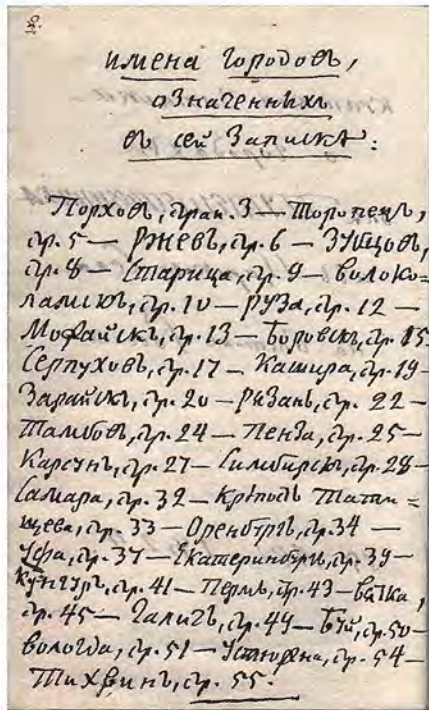 имена городовъ,
означенныхъ
въ сей Запискѣ:
Порховъ, стран. 3 — Торопецъ,
стр. 5 — Ржевъ, стр. 6 — Зубцовъ,
стр. 8 — Старица, стр. 9 — Волоко=
ламскъ, стр. 10 — Руза, стр. 12 —
Можайскъ, стр. 13 — Боровскъ, стр. 15
Серпуховъ, стр. 17 — Кашира, стр. 19 —
Зарайскъ, стр. 20 — Рязань, стр. 22 —
Тамбовъ, стр. 24 — Пенза, стр. 25 —
Карсунъ, стр. 27 — Симбирскъ, стр. 28 —
Самара, стр. 32 — Крѣпость Тати=
щева, стр. 33 — Оренбургъ, стр. 34 —
Уфа, стр. 37 — Екатеринбургъ, стр. 39 —
Кунгуръ, стр. 41 — Пермь, стр. 43 — Вятка,
стр. 45 — Галичъ, стр. 49 — Буй, стр. 50 —
Вологда, стр. 51 — Устюжна, стр. 54 —
Тихвинъ, стр. 55.